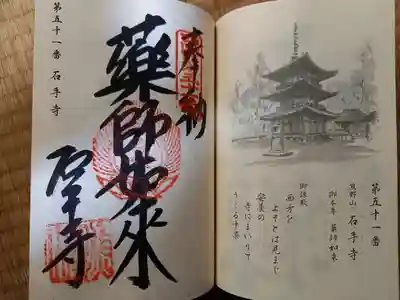 第五十一番
熊野山 石手寺
御本尊 薬師如来
御詠歌
西方を
よそとは見まじ
安養の
寺にまいりて
うくる十楽
奉納
藥師如來
石手寺
第五十一番 石手寺